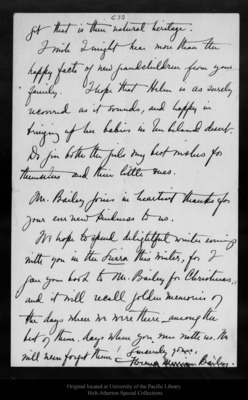 for that is their natural heritage.
I wish I might hear more than the
happy facts of new grandchildren from your
family. I hope that Helen is as surely
recovered as it sounds, and happy in
bringing up her babies in her island desert.
Do give both the girls my best wishes for
themselves and their little ones.
Mr. Bailey joins in heartiest thanks for
your ever new kindness to us.
We hope to spend delightful winter evenings
with you in the Sierra this winter, for I
gave your book to Mr. Bailey for Christmas,
and it will recall golden memories of
the days when we were there, among the
best of them, days when you were with us. We
will never forget them!
Sincerely yours,
Florence Merriam Bailey.
Original located at University of the Pacific Library
Holt-Atherton Special Collections